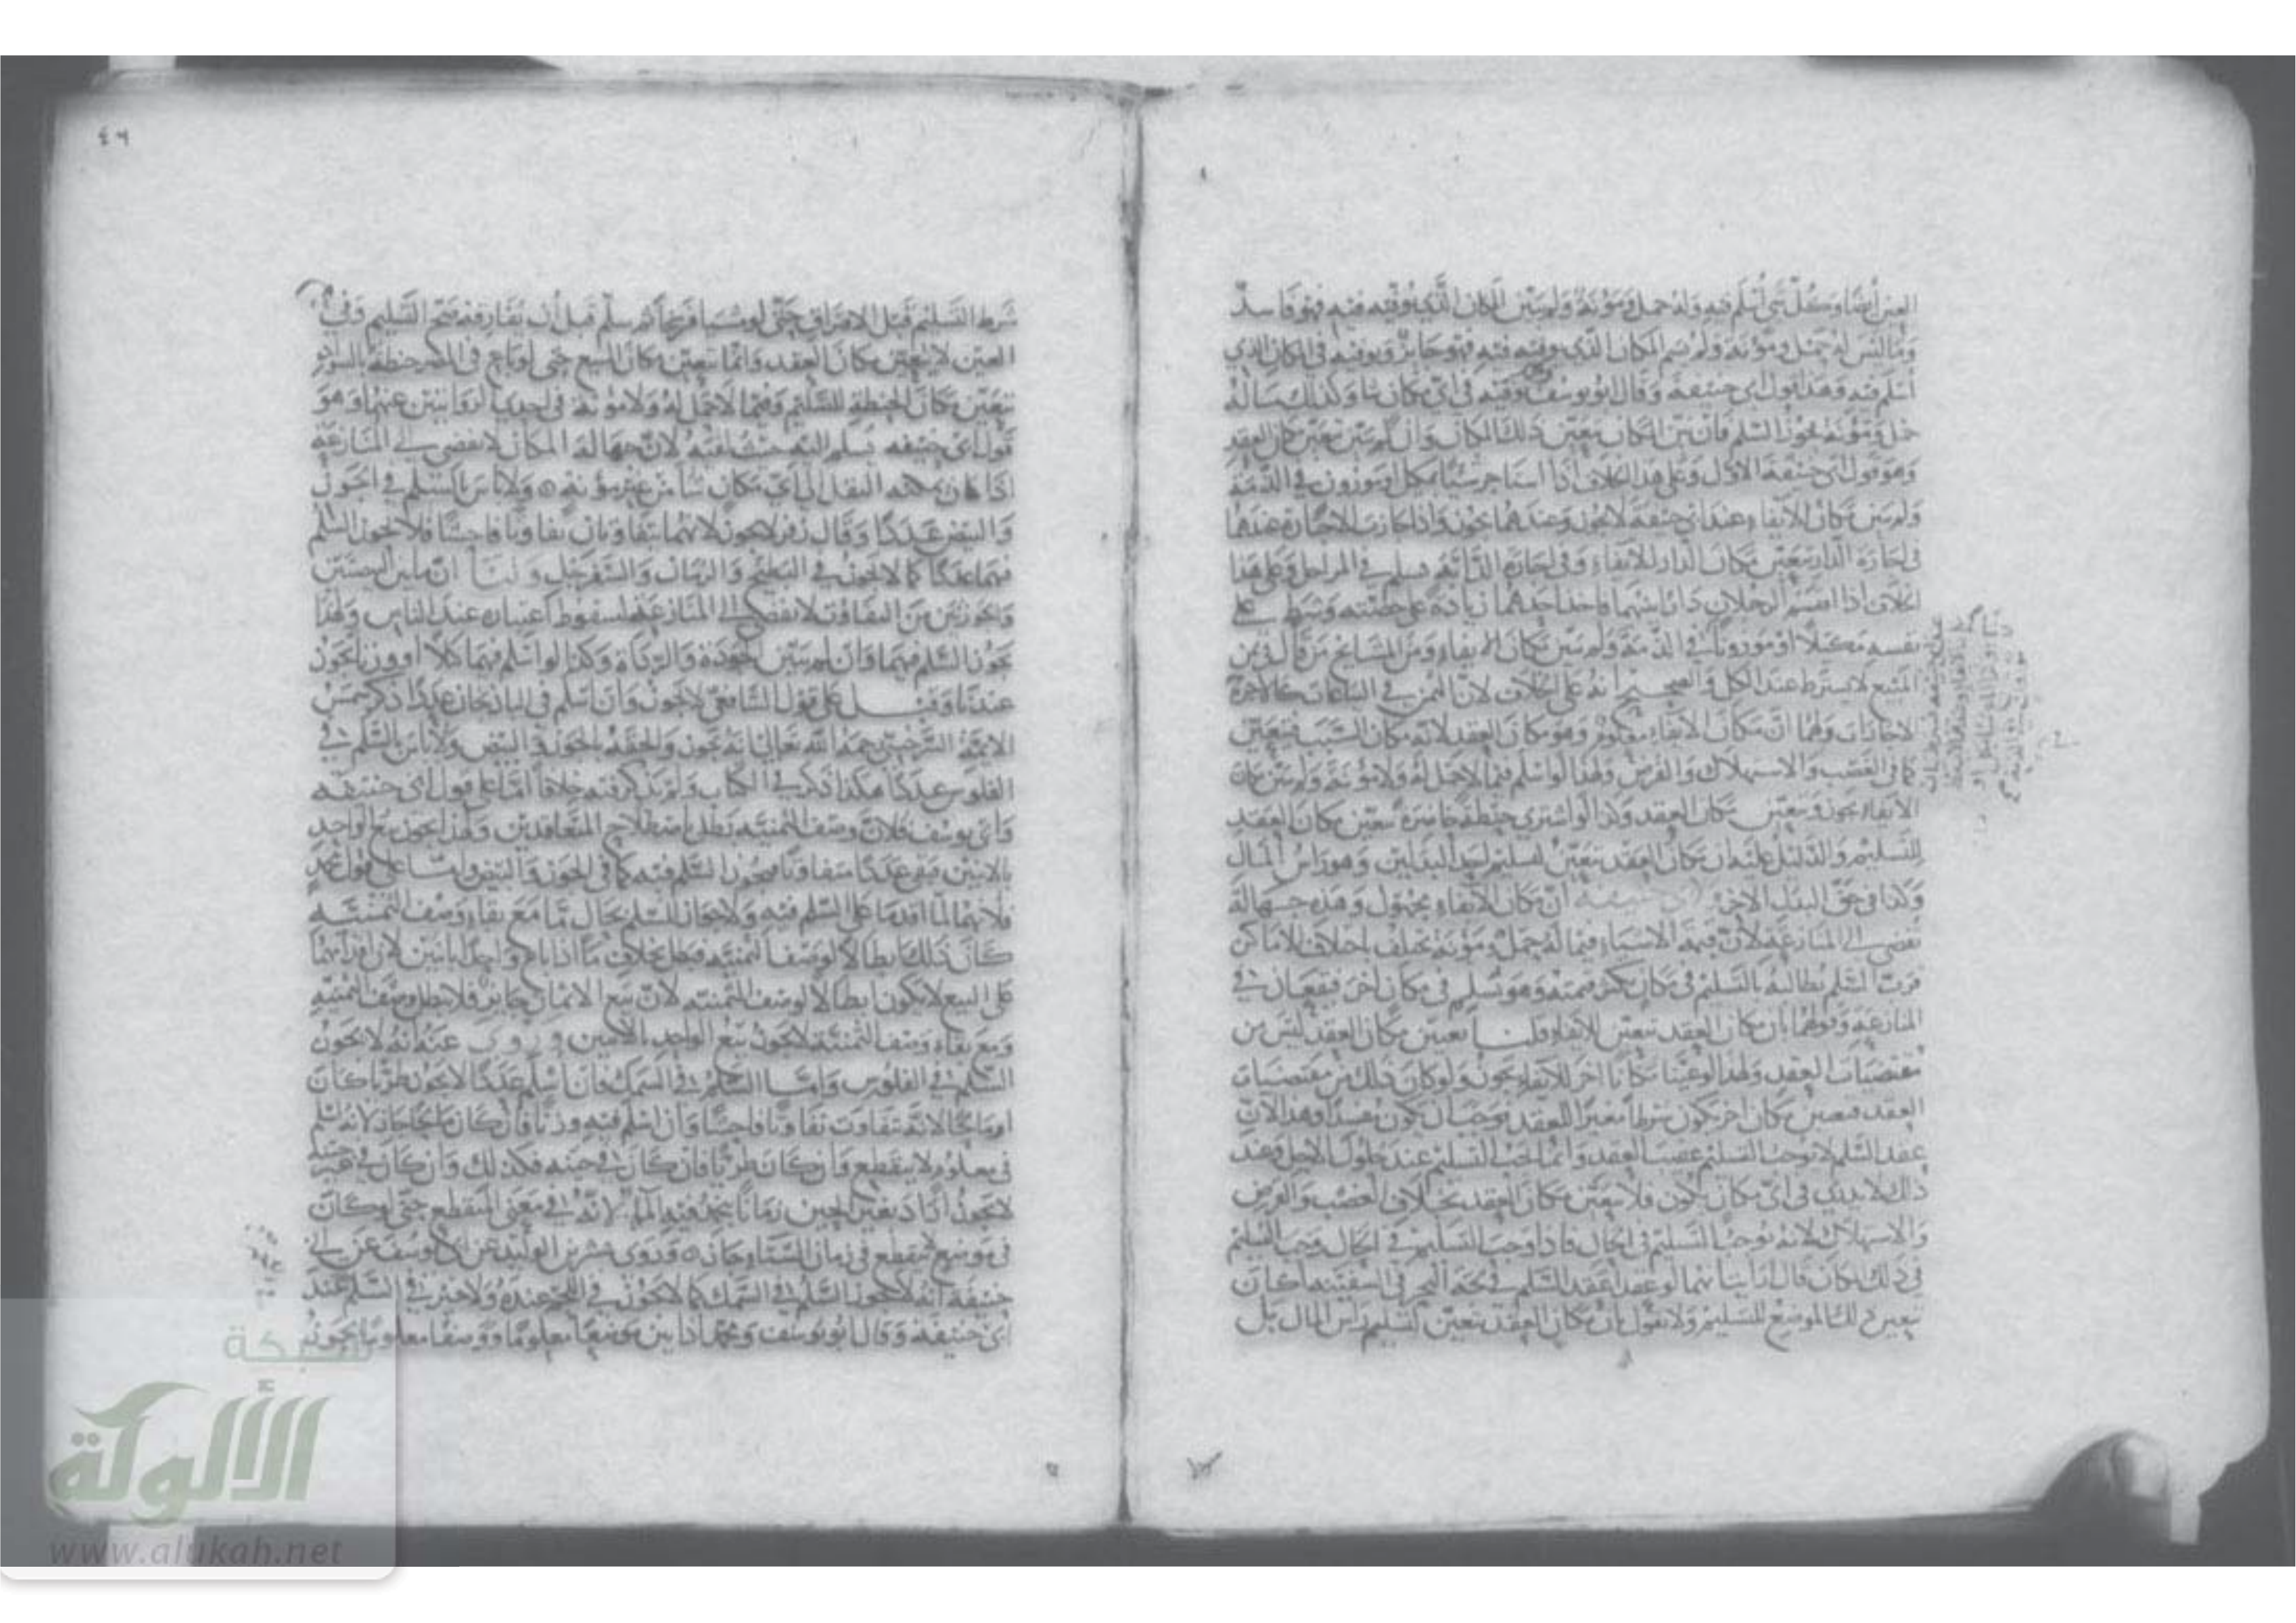 العين أيضا وكل شيء أسلم فيه وله حمل ومؤنة ولم يبين المكان الذي يوفيه فيه فهو فاسد
وما ليس له حمل ومؤنة ولم يسم المكان الذي يوفيه فيه فهو جائز ويوفيه في المكان الذي
أسلم فيه وهذا قول أبي حنيفة وقال أبو يوسف يوفيه في أي مكان شاء وكذلك ما له
حمل ومؤنة يجوز السلم فإن بين المكان يتعين ذلك المكان وإن لم يبين تعين مكان العقد
وهو قول أبي حنيفة الأول وعلى هذا الخلاف إذا استأجر شيئا بمكيل أو موزون في الذمة
ولم يبين مكان الإيفاء عند أبي حنيفة لا يجوز وعندهما يجوز وإذا جازت الإجارة عندهما
في إجارة الدار يتعين مكان الدار للإيفاء وفي إجارة الدابة يسلم في المراحل وعلى هذا
الخلاف إذا اقتسم الرجلان دارا بينهما فأخذ أحدهما زيادة على حصته وشرط على
نفسه مكيلا أو موزونا في الذمة ولم يبين مكان الإيفاء ومن المشايخ من قال في ثمن
المبيع لا يشترط عند الكل والصحيح أنه على الخلاف لأن الثمن في البياعات كالأجرة
الإجارات ولهما أن مكان الإيفاء معلوم وهو مكان العقد لأنه مكان السبب فيتعين
كما في الغصب والاستهلاك والقرض ولهذا لو أسلم فيما لا حمل له ولا مؤنة ولم يبين مكان
الإيفاء يجوز ويتعين مكان العقد وكذا لو اشترى حنطة حاضرة يتعين مكان العقد
للتسليم والدليل عليه أن مكان العقد يتعين لتسليم أحد البدلين وهو رأس المال
وكذا في حق البدل الآخر لأبي حنيفة أن مكان الإيفاء مجهول وهذه جهالة
تفضي إلى المنازعة لأن قيمة الأشياء فيما له حمل ومؤنة تختلف باختلاف الأماكن
فرب السلم يطالبه بالتسليم في مكان يكثر قيمته وهو يسلم في مكان آخر فيقعان في
المنازعة وقولهما بأن مكان العقد يتعين للإيفاء قلنا تعيين مكان العقد ليس من
مقتضيات العقد ولهذا لو عينا مكانا آخر للإيفاء يجوز ولو كان ذلك من مقتضيات
العقد فتعيين مكان آخر يكون شرطا مغيرا للعقد فوجب أن يكون مفسدا وهذا لأن
عقد السلم لا يوجب التسليم عقيب العقد وإنما يجب التسليم عند حلول الأجل وعند
ذلك لا يدرى في أي مكان يكون فلا يتعين مكان العقد بخلاف الغصب والقرض
والاستهلاك لأنه يوجب التسليم في الحال فإذا وجب التسليم في الحال وجب التسليم
في ذلك المكان قال أرأيت أنهما لو عقدا عقد السلم في لجة البحر في السفينة أكان
يتعين ذلك الموضع للتسليم ولا نقول بأن مكان العقد يتعين لتسليم رأس المال بل
٤٦
شرط التسليم قبل الافتراق حتى لو مشيا فرسخا ثم سلم قبل أن يفارقه صح التسليم وفي
العين لا يتعين مكان العقد وإنما يتعين مكان المبيع حتى لو باع في المصر حنطة بالسواد
يتعين مكان الحنطة للتسليم وفيما لا حمل له ولا مؤنة في إحدى الروايتين عنهما وهو
قول أبي حنيفة يسلم إليه حيث لقيه لأن جهالة المكان لا تفضي إلى المنازعة
إذا كان يمكنه النقل إلى أي مكان شاء من غير مؤنة ولا بأس بالسلم في الجوز
والبيض عددا وقال زفر لا يجوز لأنهما يتفاوتان تفاوتا فاحشا فلا يجوز السلم
فيهما عددا كما لا يجوز في البطيخ والرمان والسفرجل ولنا أن ما بين البيضتين
والجوزتين من التفاوت لا يفضي إلى المنازعة لسقوط اعتباره عند الناس ولهذا
يجوز السلم فيهما وإن لم يبين الجودة والرداءة وكذا لو أسلم فيهما كيلا أو وزنا يجوز
عندنا وقيل على قول الشافعي لا يجوز وإن أسلم في الباذنجان عددا ذكر شمس
الأئمة السرخسي رحمه الله تعالى أنه يجوز وألحقه بالجوز والبيض ولا بأس بالسلم في
الفلوس عددا هكذا ذكر في الكتاب ولم يذكر فيه خلافا أما على قول أبي حنيفة
وأبي يوسف فلأن وصف الثمنية يبطل باصطلاح المتعاقدين ولهذا يجوز بيع الواحد
بالاثنين فبقي عددا متفاوتا فيجوز السلم فيه كما في الجوز والبيض وأما على قول محمد
فلأنهما لما أقدما على السلم فيه ولا جواز للسلم بحال ما مع بقاء وصف الثمنية
كان ذلك إبطالا لوصف الثمنية فبطل بخلاف ما إذا باع واحدا باثنين لأن إقدامهما
على البيع لا يكون إبطالا لوصف الثمنية لأن بيع الأثمان جائز فلا يبطل وصف الثمنية
ومع بقاء وصف الثمنية لا يجوز بيع الواحد بالاثنين وروي عنه أنه لا يجوز
السلم في الفلوس وأما السلم في السمك فإن أسلم عددا لا يجوز طريا كان
أو مالحا لأنه يتفاوت تفاوتا فاحشا وإن أسلم فيه وزنا فإن كان مالحا جاز لأنه أسلم
في معلوم لا ينقطع وإن كان طريا فإن كان في حينه فكذلك وإن كان في غير حينه
لا يجوز أراد بغير الحين زمانا يجمد فيه الماء لأنه في معنى المنقطع حتى لو كان
في موضع لا ينقطع في زمان الشتاء جاز وروى بشر بن الوليد عن أبي يوسف عن أبي
حنيفة أنه لا يجوز السلم في السمك كما لا يجوز في اللحم عنده ولا خير في السلم عند
أبي حنيفة وقال أبو يوسف ومحمد إذا بين موضعا معلوما ووصفا معلوما يجوز
شبكة
الألوكة
www.alukah.net